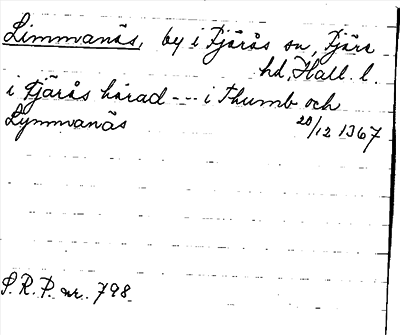 Limmanäs, by i Fjärås sn, Fjäre
hd, Hall. l.
i Fjärås härad --- i Thumb och
Lymmanäs 20/12 1367
S.R.P. nr. 798.